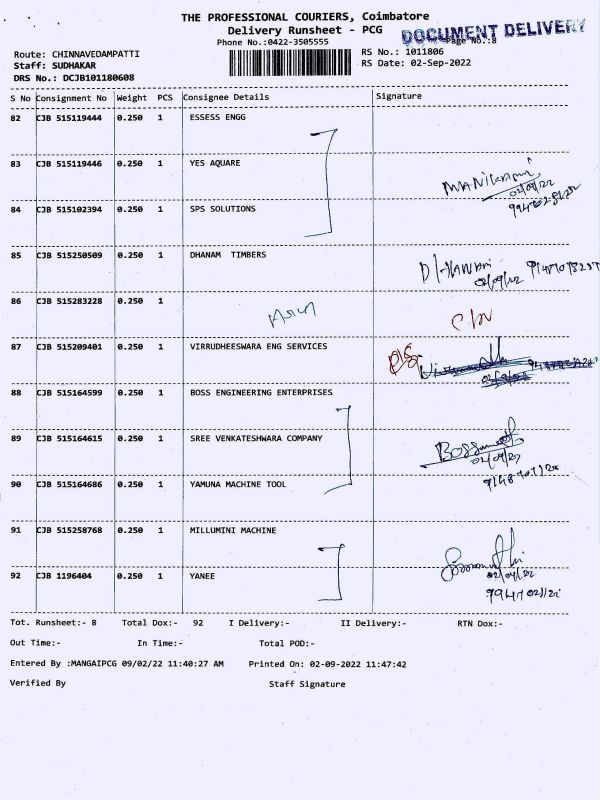 THE PROFESSIONAL COURIERS, Coimbatore
Delivery Runsheet - PCG
DOCUMENT DELIVERY
Phone No.:0422-3505555
Page No.:8
Route: CHINNAVEDAMPATTI
RS No.: 1011806
Staff: SUDHAKAR
RS Date: 02-Sep-2022
DRS No.: DCJB101180608
S No Consignment No Weight PCS Consignee Details Signature
82 CJB 515119444 0.250 1 ESSESS ENGG
83 CJB 515119446 0.250 1 YES AQUARE
02/09/22
84 CJB 515102394 0.250 1 SPS SOLUTIONS
85 CJB 515250509 0.250 1 DHANAM TIMBERS
02/09/22
86 CJB 515283228 0.250 1
87 CJB 515209401 0.250 1 VIRRUDHEESWARA ENG SERVICES
88 CJB 515164599 0.250 1 BOSS ENGINEERING ENTERPRISES
89 CJB 515164615 0.250 1 SREE VENKATESHWARA COMPANY
90 CJB 515164686 0.250 1 YAMUNA MACHINE TOOL
91 CJB 515258768 0.250 1 MILLUMINI MACHINE
92 CJB 1196404 0.250 1 YANEE
02/09/22
Tot. Runsheet:- 8 Total Dox:- 92 I Delivery:- II Delivery:- RTN Dox:-
Out Time:- In Time:- Total POD:-
Entered By :MANGAIPCG 09/02/22 11:40:27 AM Printed On: 02-09-2022 11:47:42
Verified By Staff Signature